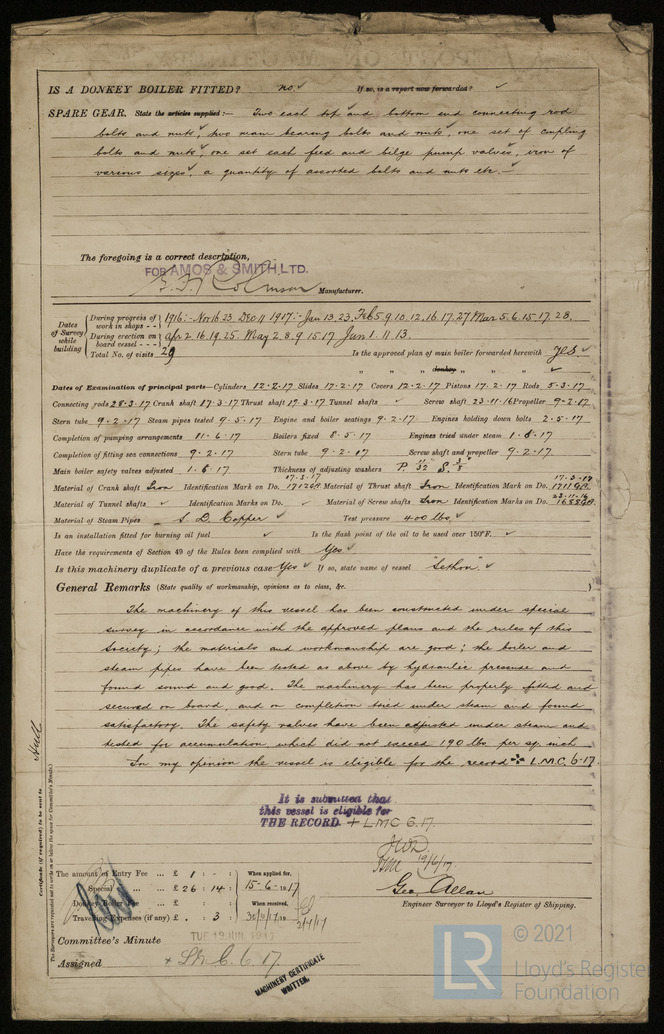 IS A DONKEY BOILER FITTED? no ✓ If so, is a report now forwarded? ✓
SPARE GEAR. State the articles supplied:— Two each top and bottom end connecting rod
bolts and nuts, ✓ two main bearing bolts and nuts, ✓ one set of coupling
bolts and nuts, ✓ one set each feed and bilge pump valves, ✓ iron of
various sizes, ✓ a quantity of assorted bolts and nuts etc. ✓
The foregoing is a correct description,
FOR AMOS & SMITH, LTD.
Robinson Manufacturer.
Dates of Survey while building
During progress of work in shops - - 1916:- Nov 16. 23. Dec 11 1917:- Jan 13. 23. Feb 5. 9. 10. 12. 16. 17. 27 Mar 5. 6. 15. 17. 28.
During erection on board vessel - - - Apr 2. 16. 19. 25. May 2. 8. 9. 15. 17 Jun 1. 11. 13.
Total No. of visits 29 Is the approved plan of main boiler forwarded herewith Yes ✓
" " " donkey " " " ✓
Dates of Examination of principal parts—Cylinders 12.2.17 Slides 17.2.17 Covers 12.2.17 Pistons 17.2.17 Rods 5.3.17
Connecting rods 28.3.17 Crank shaft 17.3.17 Thrust shaft 17.3.17 Tunnel shafts ✓ Screw shaft 23.11.16 Propeller 9.2.17
Stern tube 9.2.17 Steam pipes tested 9.5.17 Engine and boiler seatings 9.2.17 Engines holding down bolts 2.5.17
Completion of pumping arrangements 11.6.17 Boilers fixed 8.5.17 Engines tried under steam 1.6.17
Completion of fitting sea connections 9.2.17 Stern tube 9.2.17 Screw shaft and propeller 9.2.17
Main boiler safety valves adjusted 1.6.17 Thickness of adjusting washers P. 11/32 S. 3/8
Material of Crank shaft Iron Identification Mark on Do. 1712GA 17.3.17 Material of Thrust shaft Iron Identification Mark on Do. 1711GA 17.3.17
Material of Tunnel shafts ✓ Identification Marks on Do. ✓ Material of Screw shafts Iron Identification Marks on Do. 1688GA 23.11.16
Material of Steam Pipes S. D. Copper ✓ Test pressure 400 lbs. ✓
Is an installation fitted for burning oil fuel ✓ Is the flash point of the oil to be used over 150°F. ✓
Have the requirements of Section 49 of the Rules been complied with Yes ✓
Is this machinery duplicate of a previous case Yes ✓ If so, state name of vessel "Sethon". ✓
General Remarks (State quality of workmanship, opinions as to class, &c. )
The machinery of this vessel has been constructed under special
survey in accordance with the approved plans and the rules of this
Society; the materials and workmanship are good; the boiler and
steam pipes have been tested as above by hydraulic pressure and
found sound and good. The machinery has been properly fitted and
secured on board, and on completion tried under steam and found
satisfactory. The safety valves have been adjusted under steam and
tested for accumulation which did not exceed 190 lbs per sq. inch.
In my opinion the vessel is eligible for the record + L.M.C. 6.17.
It is submitted that
this vessel is eligible for
THE RECORD. + LMC 6.17.
19/6/17.
The amount of Entry Fee ... £ 1 : - : When applied for,
Special ... ... £ 26 : 14 : 15-6-1917
Donkey Boiler Fee ... ... £ : : When received,
Travelling Expenses (if any) £ . : 3 :
Geo. Allan
Engineer Surveyor to Lloyd's Register of Shipping.
Committee's Minute TUE 19 JUN. 1917
Assigned + L.M.C. 6.17
MACHINERY CERTIFICATE
WRITTEN.
Certificate (if required) to be sent to Hull
The Surveyors are requested not to write on or below the space for Committee's Minute.
LR
© 2021
Lloyd's Register
Foundation